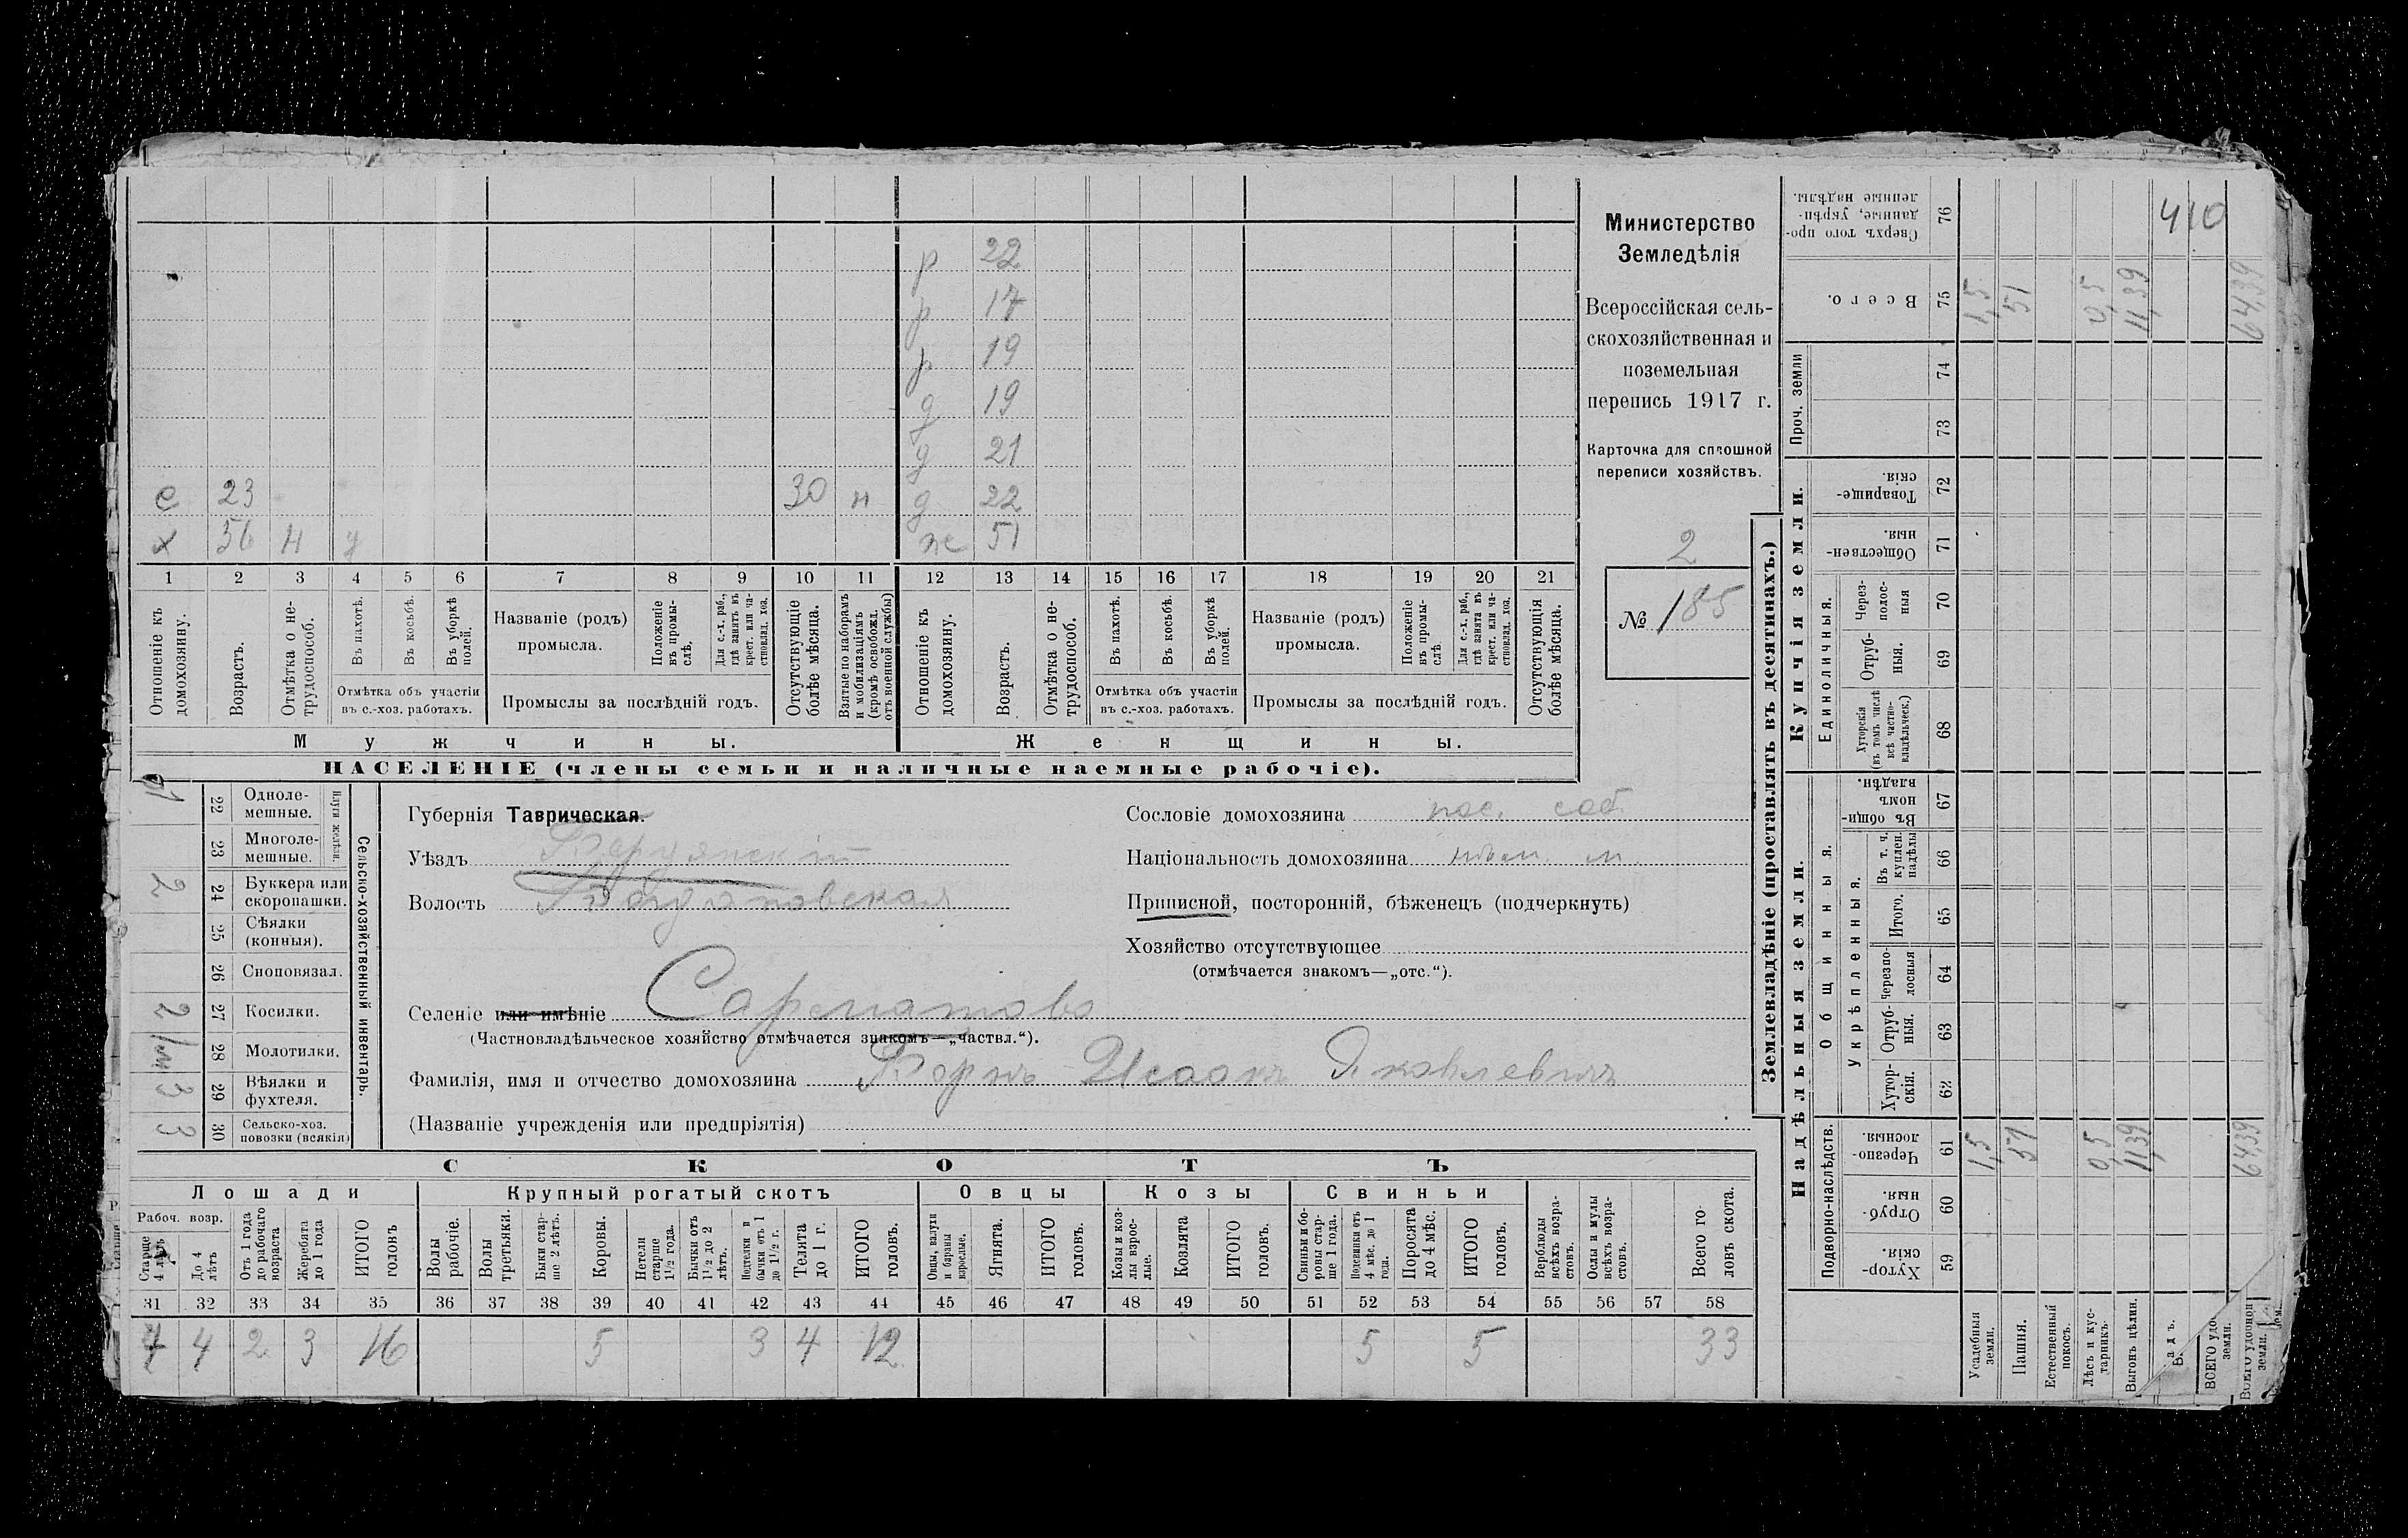 р 22
р 17
р 19
д 19
д 21
с 23 30 н д 22
х 56 н у ж 51
1 2 3 4 5 6 7 8 9 10 11 12 13 14 15 16 17 18 19 20 21
Отношеніе къ домохозяину.
Возрастъ.
Отмѣтка о нетрудоспособ.
Въ пахотѣ.
Въ косьбѣ.
Въ уборкѣ полей.
Отмѣтка объ участіи
въ с.-хоз. работахъ.
Названіе (родъ)
промысла.
Положеніе въ промыслѣ,
Для с.-х. раб., гдѣ занятъ въ крест. или частновлад. хоз.
Промыслы за послѣдній годъ.
Отсутствующіе болѣе мѣсяца.
Взятые по наборамъ и мобилизаціямъ (кромѣ освобожд. отъ военной службы)
Отношеніе къ домохозяину.
Возрастъ.
Отмѣтка о нетрудоспособ.
Въ пахотѣ.
Въ косьбѣ.
Въ уборкѣ полей.
Отмѣтка объ участіи
въ с.-хоз. работахъ.
Названіе (родъ)
промысла.
Положеніе въ промыслѣ
Для с.-х. раб., гдѣ занята въ крест. или частновлад. хоз.
Промыслы за послѣдній годъ.
Отсутствующія болѣе мѣсяца.
Мужчины.
Женщины.
НАСЕЛЕНІЕ (члены семьи и наличные наемные рабочіе).
Министерство
Земледѣлія
Всероссійская сель-
скохозяйственная и
поземельная
перепись 1917 г.
Карточка для сплошной
переписи хозяйствъ.
2
№ 185
Губернія Таврическая.
Уѣздъ Бердянскій
Волость Богдановская
Селеніе или имѣніе Сарматово
(Частновладѣльческое хозяйство отмѣчается знакомъ—„частвл.“).
Фамилія, имя и отчество домохозяина Борнъ Исаакъ Яковлевичъ
(Названіе учрежденія или предпріятія)
Сословіе домохозяина пос. соб.
Національность домохозяина нѣм. м.
Приписной, посторонній, бѣженецъ (подчеркнуть)
Хозяйство отсутствующее
(отмѣчается знакомъ—„отс.“).
Сельско-хозяйственный инвентарь.
Плуги желѣзн.
22 Одноле-
мешные.
23 Многоле-
мешные.
2 24 Буккера или
скоропашки.
25 Сѣялки
(конныя).
26 Сноповязал.
2 27 Косилки.
28 Молотилки.
3 29 Вѣялки и
фухтеля.
3 30 Сельско-хоз.
повозки (всякія)
СКОТЪ
Лошади
Крупный рогатый скотъ
Овцы
Козы
Свиньи
Рабоч. возр.
Старше 4 лѣтъ
До 4 лѣтъ
Отъ 1 года до рабочаго возраста
Жеребята до 1 года
ИТОГО головъ
Волы рабочіе.
Волы третьяки.
Быки старше 2 лѣтъ.
Коровы.
Нетели старше 1½ года.
Бычки отъ 1½ до 2 лѣтъ.
Подтелки и бычки отъ 1 до 1½ г.
Телята до 1 г.
ИТОГО головъ.
Овцы, валухи и бараны взрослые.
Ягнята.
ИТОГО головъ.
Козы и козлы взрослые.
Козлята
ИТОГО головъ.
Свиньи и боровы старше 1 года.
Подсвинки отъ 4 мѣс. до 1 года.
Поросята до 4 мѣс.
ИТОГО головъ.
Верблюды всѣхъ возрастовъ.
Ослы и мулы всѣхъ возрастовъ.
Всего головъ скота.
31 32 33 34 35 36 37 38 39 40 41 42 43 44 45 46 47 48 49 50 51 52 53 54 55 56 57 58
7 4 2 3 16 5 3 4 12 5 5 33
Землевладѣніе (проставлять въ десятинахъ.)
Купчія земли.
Надѣльныя земли.
Сверхъ того проданные, укрѣпленные надѣлы. 76
410
Всего. 75 1,5 51 0,5 11,39 64,39
Проч. земли
74
73
Товарищескія. 72
Общественныя. 71
Единоличныя.
Черезполосныя 70
Отрубныя. 69
Хуторскія (въ томъ числѣ всѣ частновладѣльческ.) 68
Общинныя.
Въ общинномъ владѣн. 67
Укрѣпленныя.
Въ т. ч. куплен. надѣлы 66
Итого. 65
Черезполосныя 64
Отрубныя. 63
Хуторскія. 62
Подворно-наслѣдств.
Черезполосныя. 61 1,5 51 0,5 11,39 64,39
Отрубныя. 60
Хуторскія. 59
Усадебныя земли.
Пашня.
Естественный покосъ.
Лѣсъ и кустарникъ.
Выгонъ цѣлин.